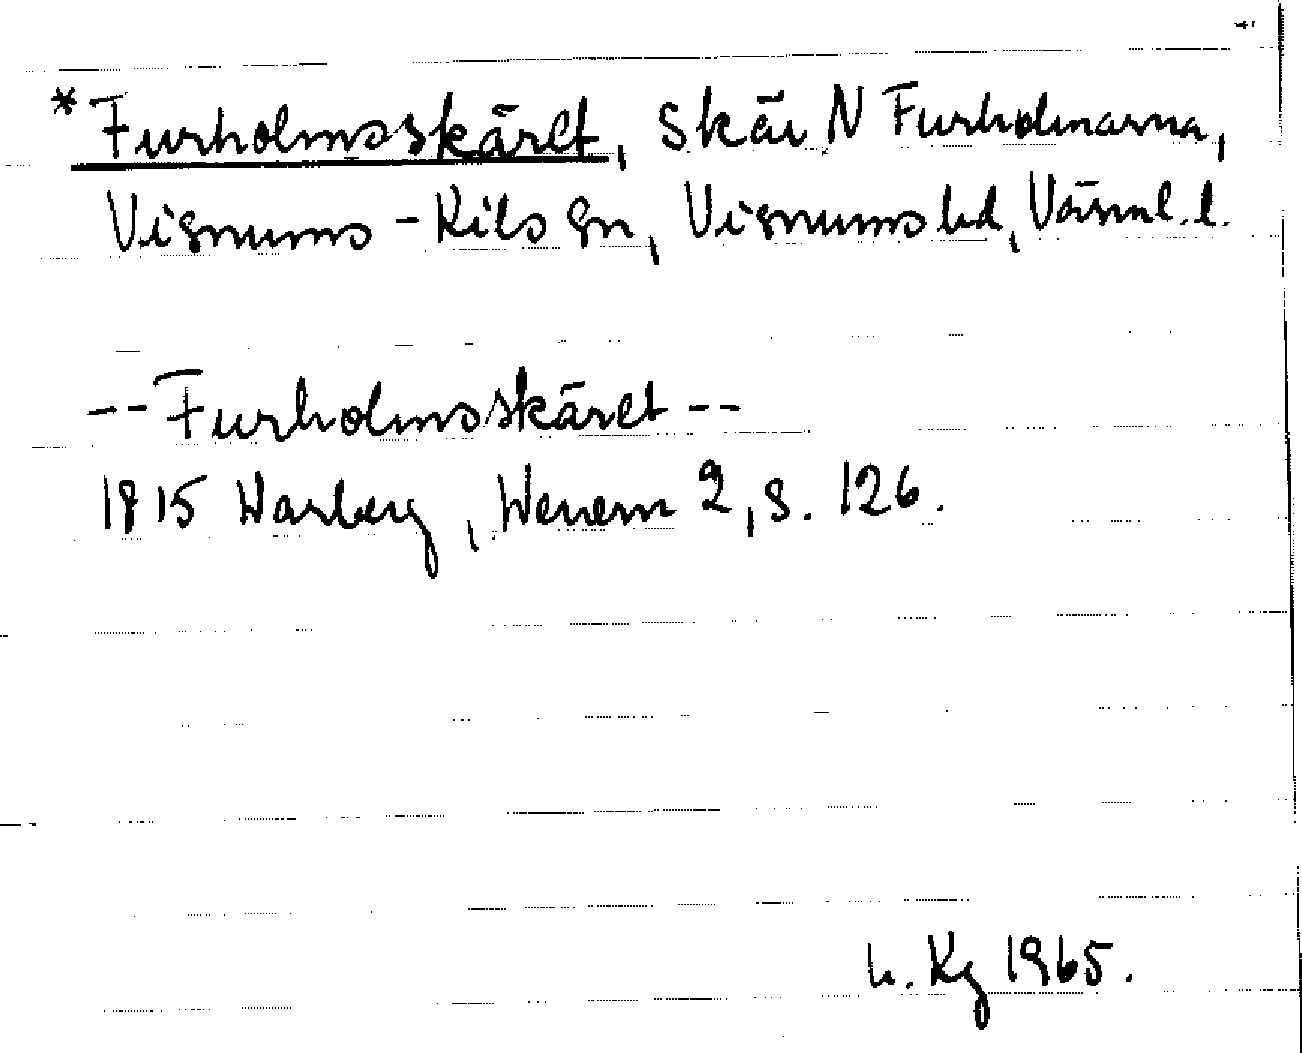 *Furholmsskäret, skär N Furholmarna,
Visnums-Kils sn, Visnums hd, Värml. l.
--Furholmsskäret--
1815 Warberg, Wenern 2, s. 126.
h. Kg 1965.